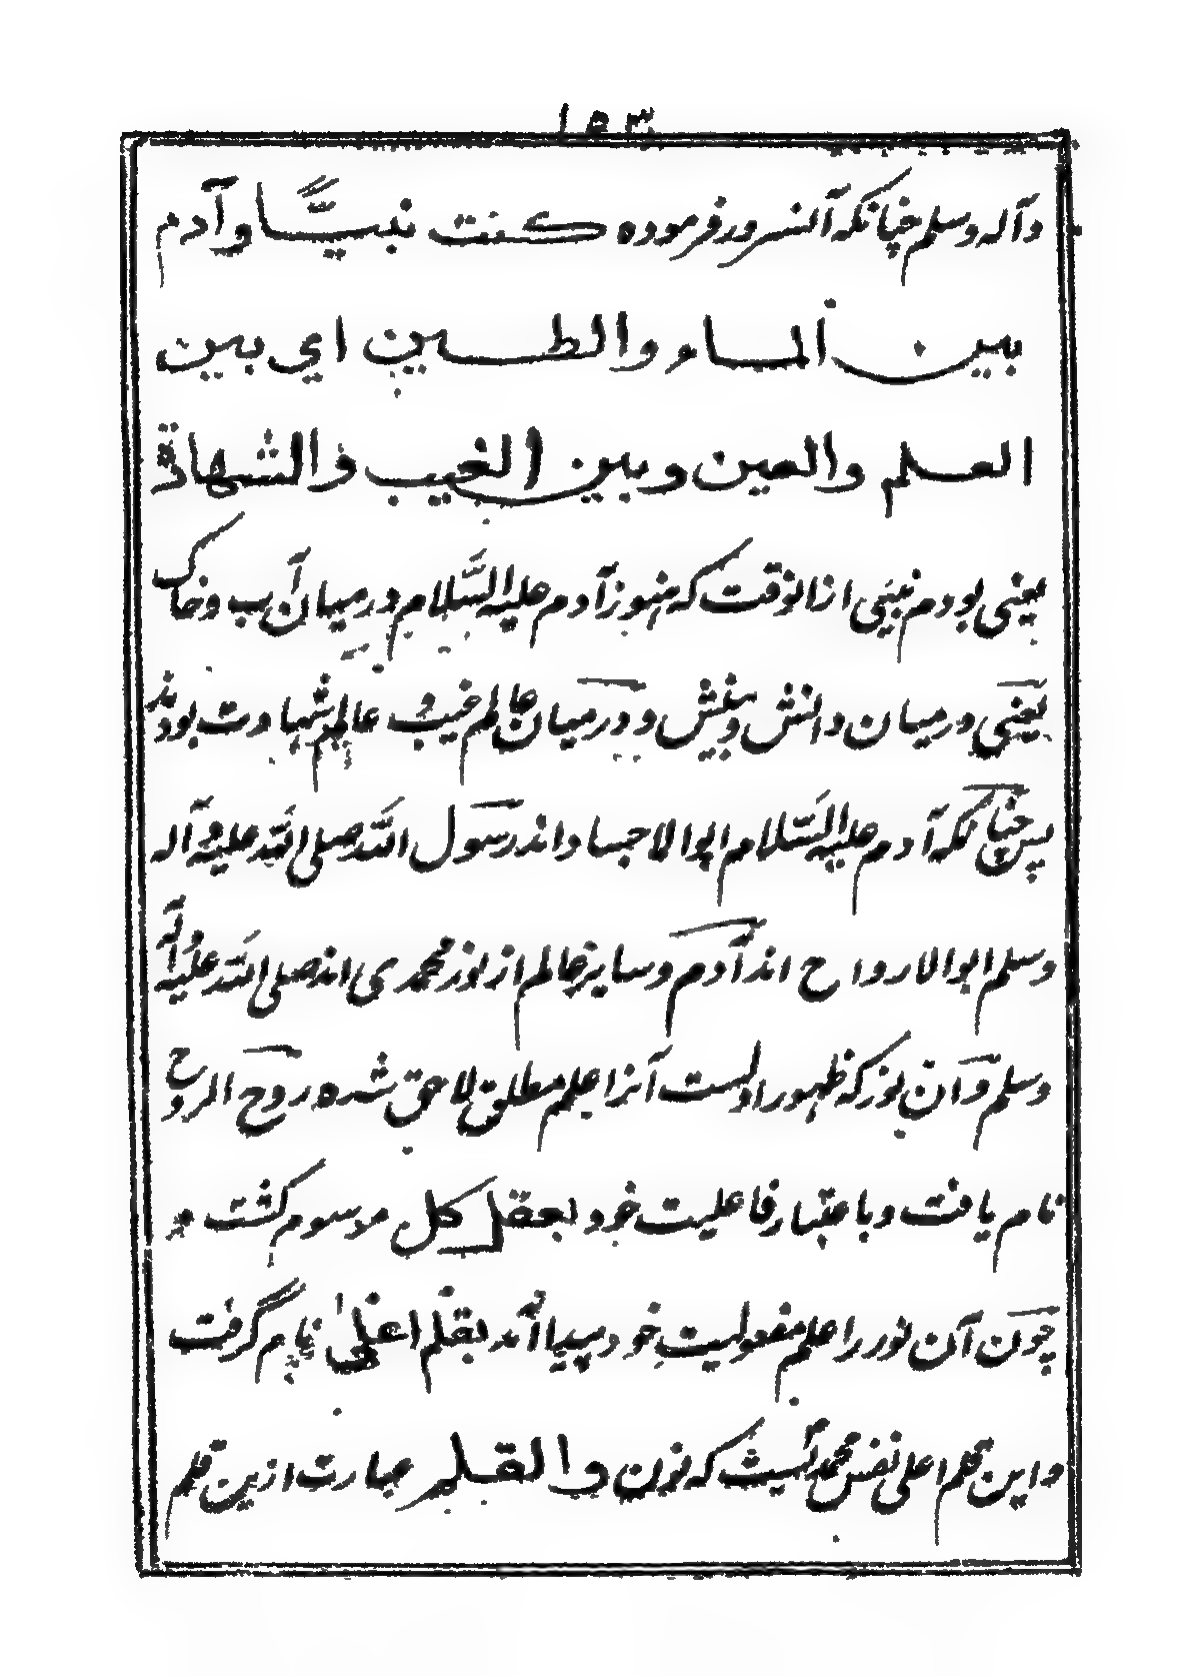 ١٥٣
وآله وسلم چنانکه آنسرور فرموده کنت نبیّا وآدم
بین الماء والطین ای بین
العلم والعین وبین الغیب والشهادة
یعنی بودم نبیی ازانوقت که هنوز آدم علیه السّلام درمیان آب وخاک
یعنی درمیان دانش وبینش و درمیان عالم غیب و عالم شهادت بودند
پس چنانکه آدم علیه السّلام ابوالاجساد اند رسول اللّه صلی اللّه علیه وآله
وسلم ابوالارواح اند آدم وسایر عالم از نور محمدی اند صلی اللّه علیه وآله
وسلم وآن نور که ظهور اولست آنرا علم مطلق لاحق شده روح الروح
نام یافت وباعتبار فاعلیت خود بعقل کل موسوم گشت و
چون آن نور را علم مفعولیت خود پیدا آمد بقلم اعلیٰ نام گرفت
واین قلم اعلی نفس محمدیست که نون والقلم عبارت ازین قلم